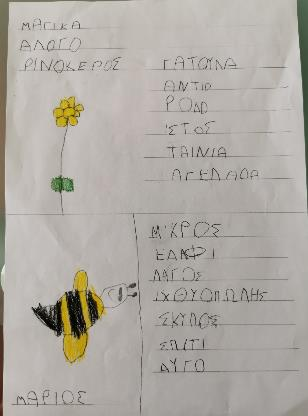 ΜΑΓΙΚΑ
ΑΛΟΓΟ
ΡΙΝΟΚΕΡΟΣ
ΓΑΤΟΥΛΑ
ΑΝΤΙΟ
ΡΟΔΟ
ΙΣΤΟΣ
ΤΑΙΝΙΑ
ΑΓΕΛΑΔΑ
ΜΙΚΡΟΣ
ΕΛΑΦΙ
ΛΑΓΟΣ
ΙΧΘΥΟΠΩΛΗΣ
ΣΚΥΛΟΣ
ΣΠΙΤΙ
ΑΥΓΟ
ΜΑΡΙΟΣ